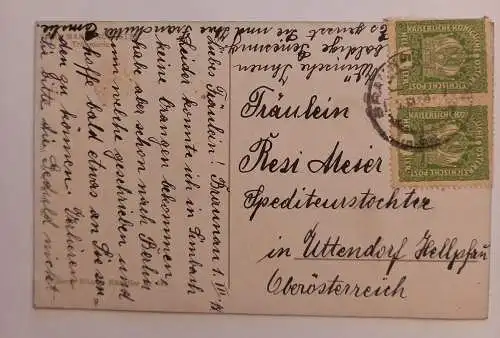 Braunau 1. VII. 18
Liebes Fräulein!
Leider konnte ich in Simbach
keine Orangen bekommen,
habe aber schon nach Berlin
um welche geschrieben und
hoffe bald etwas an Sie sen-
den zu können. Verlieren
Sie bitte die Geduld nicht.
Wünsche Ihnen
baldige Genesung
Es grüsst Sie und
Ihre
Fräulein
Resi Meier
Spediteurstochter
in Uttendorf Hellpfau
Oberösterreich
KAISERLICHE KÖNIGLICHE
ÖSTERREICHISCHE POST
KAISERLICHE KÖNIGLICHE
ÖSTERREICHISCHE POST
BRAUNAU